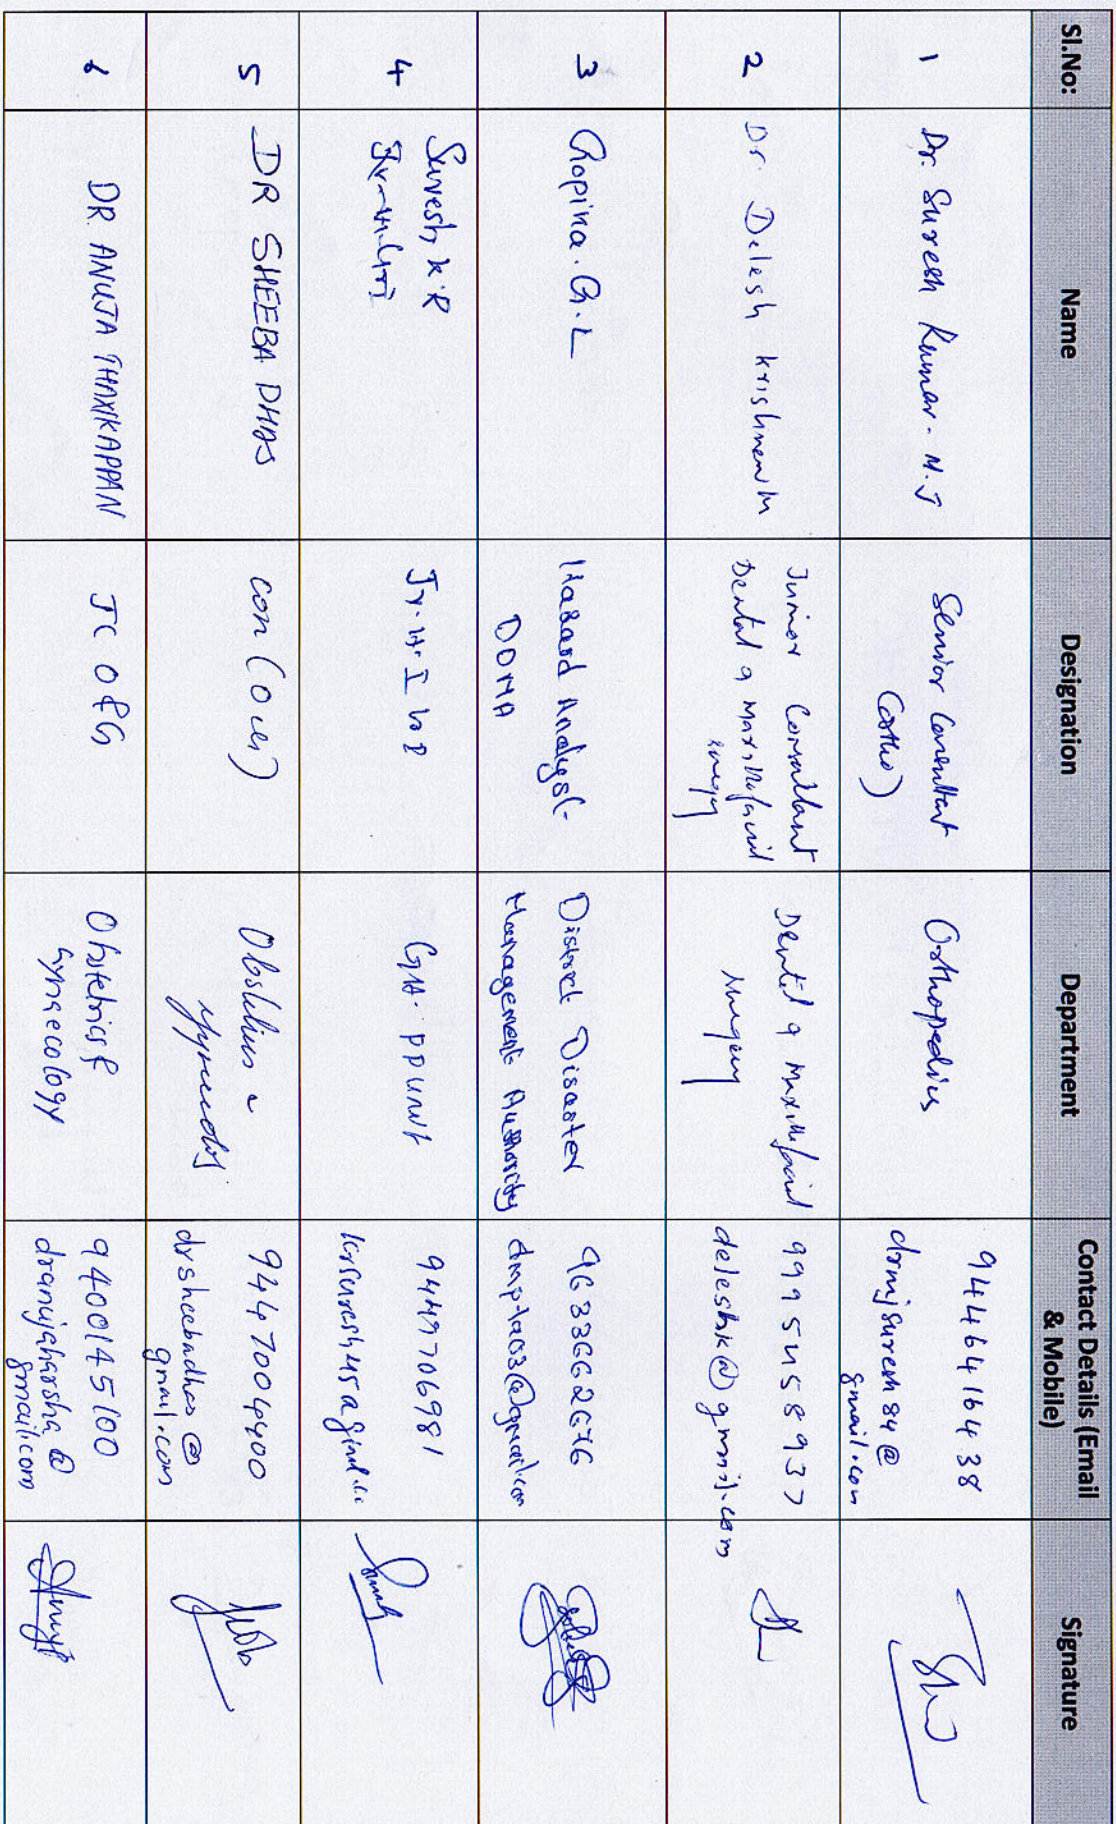 Sl.No:
Name
Designation
Department
Contact Details (Email
& Mobile)
Signature
1
Dr. Suresh Kumar. M.J
Senior Consultant
(Ortho)
Orthopedics
9446416438
drmjsuresh84@
gmail.com
2
Dr. Delesh Krishnan
Junior Consultant
Dental & Maxillofacial
surgery
Dental & Maxillofacial
surgery
9995458937
deleshk@gmail.com
3
Gopika.G.L
Hazard Analyst-
DDMA
District Disaster
Management Authority
@gmail.com
4
Suresh K.R
Jr. H. I
GH. PP Unit
9449706981
5
DR SHEEBA DHAS
con (
Obstetrics &
gynecology
9447004400
drsheebadhas@
gmail.com
6
DR. ANUJA THANKAPPAN
JC O&G
Obstetrics &
Gynaecology
9400145100
dranujaharsha@
gmail.com